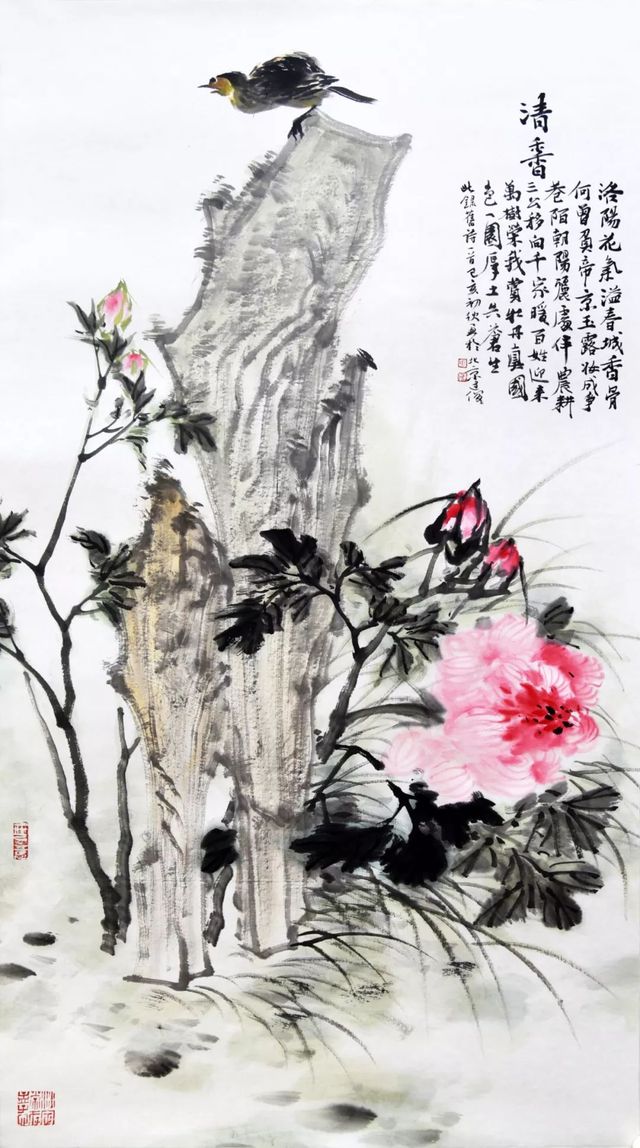 清香
洛陽花氣溢春城香骨
何曾負帝京玉露妝成爭
巷陌朝陽麗處伴農耕
三公移向千家暖百姓迎來
萬樹榮我賞牡丹真國
色一園厚土共蒼生
此錄舊詩一首己亥初秋寫於北京